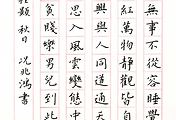 無事不從容睡覺
紅萬物靜觀皆自
興與人同道通天
思入風雲變態
貧賤樂男兒到此
程顥秋日 况兆鴻書